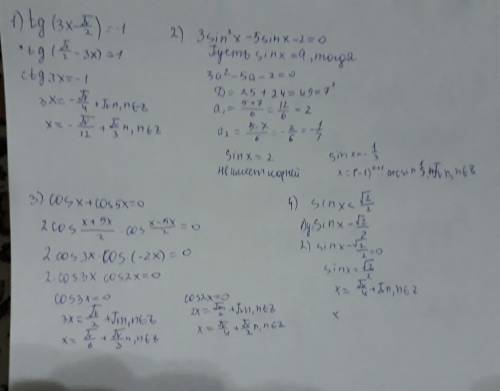 1) tg(3x-π/2)=-1
*tg(π/2-3x)=1
ctg3x=-1
3x=-π/4+πn,n∈z
x=-π/12+π/3n,n∈z
2) 3sin²x-5sinx-2=0
Пусть sinx=a, тогда
3a²-5a-2=0
D=25+24=49=7²
a₁=5+7/6=12/6=2
a₂=5-7/6=-2/6=-1/3
sinx=2
Не имеет корней
sinx=-1/3
x=(-1)ⁿ⁺¹arcsin1/3+πn,n∈z
3) cosx+cos5x=0
2cos x+5x/2·cos x-5x/2=0
2cos3x·cos(-2x)=0
2·cos3x cos2x=0
cos3x=0
3x=π/2+πn,n∈z
x=π/6+π/3n,n∈z
cos2x=0
2x=π/2+πn,n∈z
x=π/4+π/2n,n∈z
4) sinx<√2/2
1)y=sinx-√2/2
2) sinx-√2/2=0
sinx=√2/2
x=π/4+πn,n∈z
x